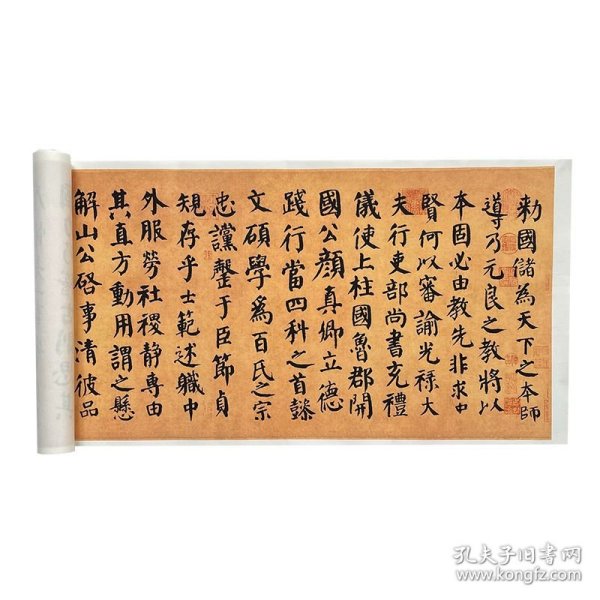 勑國儲為天下之本師
導乃元良之教將以
本固必由教先非求中
賢何以審諭光祿大
夫行吏部尚書充禮
儀使上柱國魯郡開
國公顏真卿立德
踐行當四科之首懿
文碩學爲百氏之宗
忠讜罄于臣節貞
規存乎士範述職中
外服勞社稷靜專由
其直方動用謂之懸
解山公啓事清彼品
孔夫子旧书网
www.kongfz.com